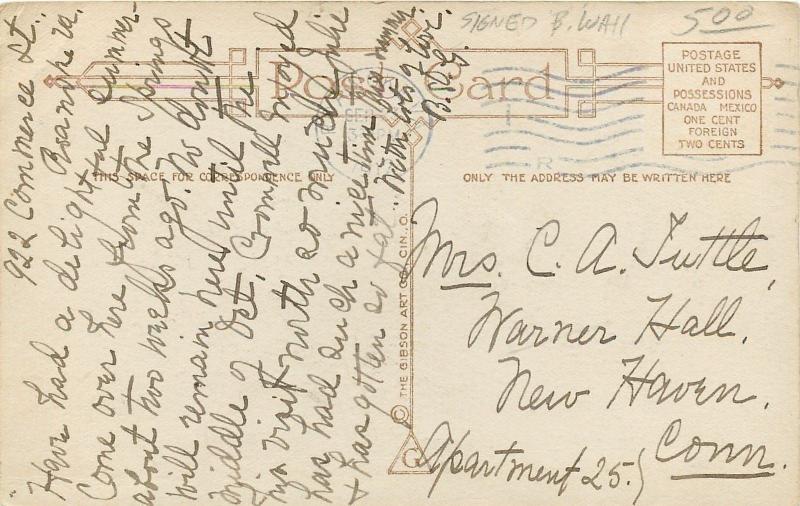 SIGNED B. WALL
5.00
Post Card
POSTAGE
UNITED STATES
AND
POSSESSIONS
CANADA MEXICO
ONE CENT
FOREIGN
TWO CENTS
THIS SPACE FOR CORRESPONDENCE ONLY
ONLY THE ADDRESS MAY BE WRITTEN HERE
922 Commerce St.
Roanoke Va.
Have had a delightful summer-
Come over here from the Springs
about two weeks ago. No doubt
will remain here until the
middle of Oct. Cromwell enjoyed
his visit North so much. He
has had such a nice time this summer
& has gotten so fat.
With lots of love.
Mrs. C. A. Tuttle,
Warner Hall.
New Haven.
Conn.
Apartment 25.
© THE GIBSON ART CO., CIN., O.
G